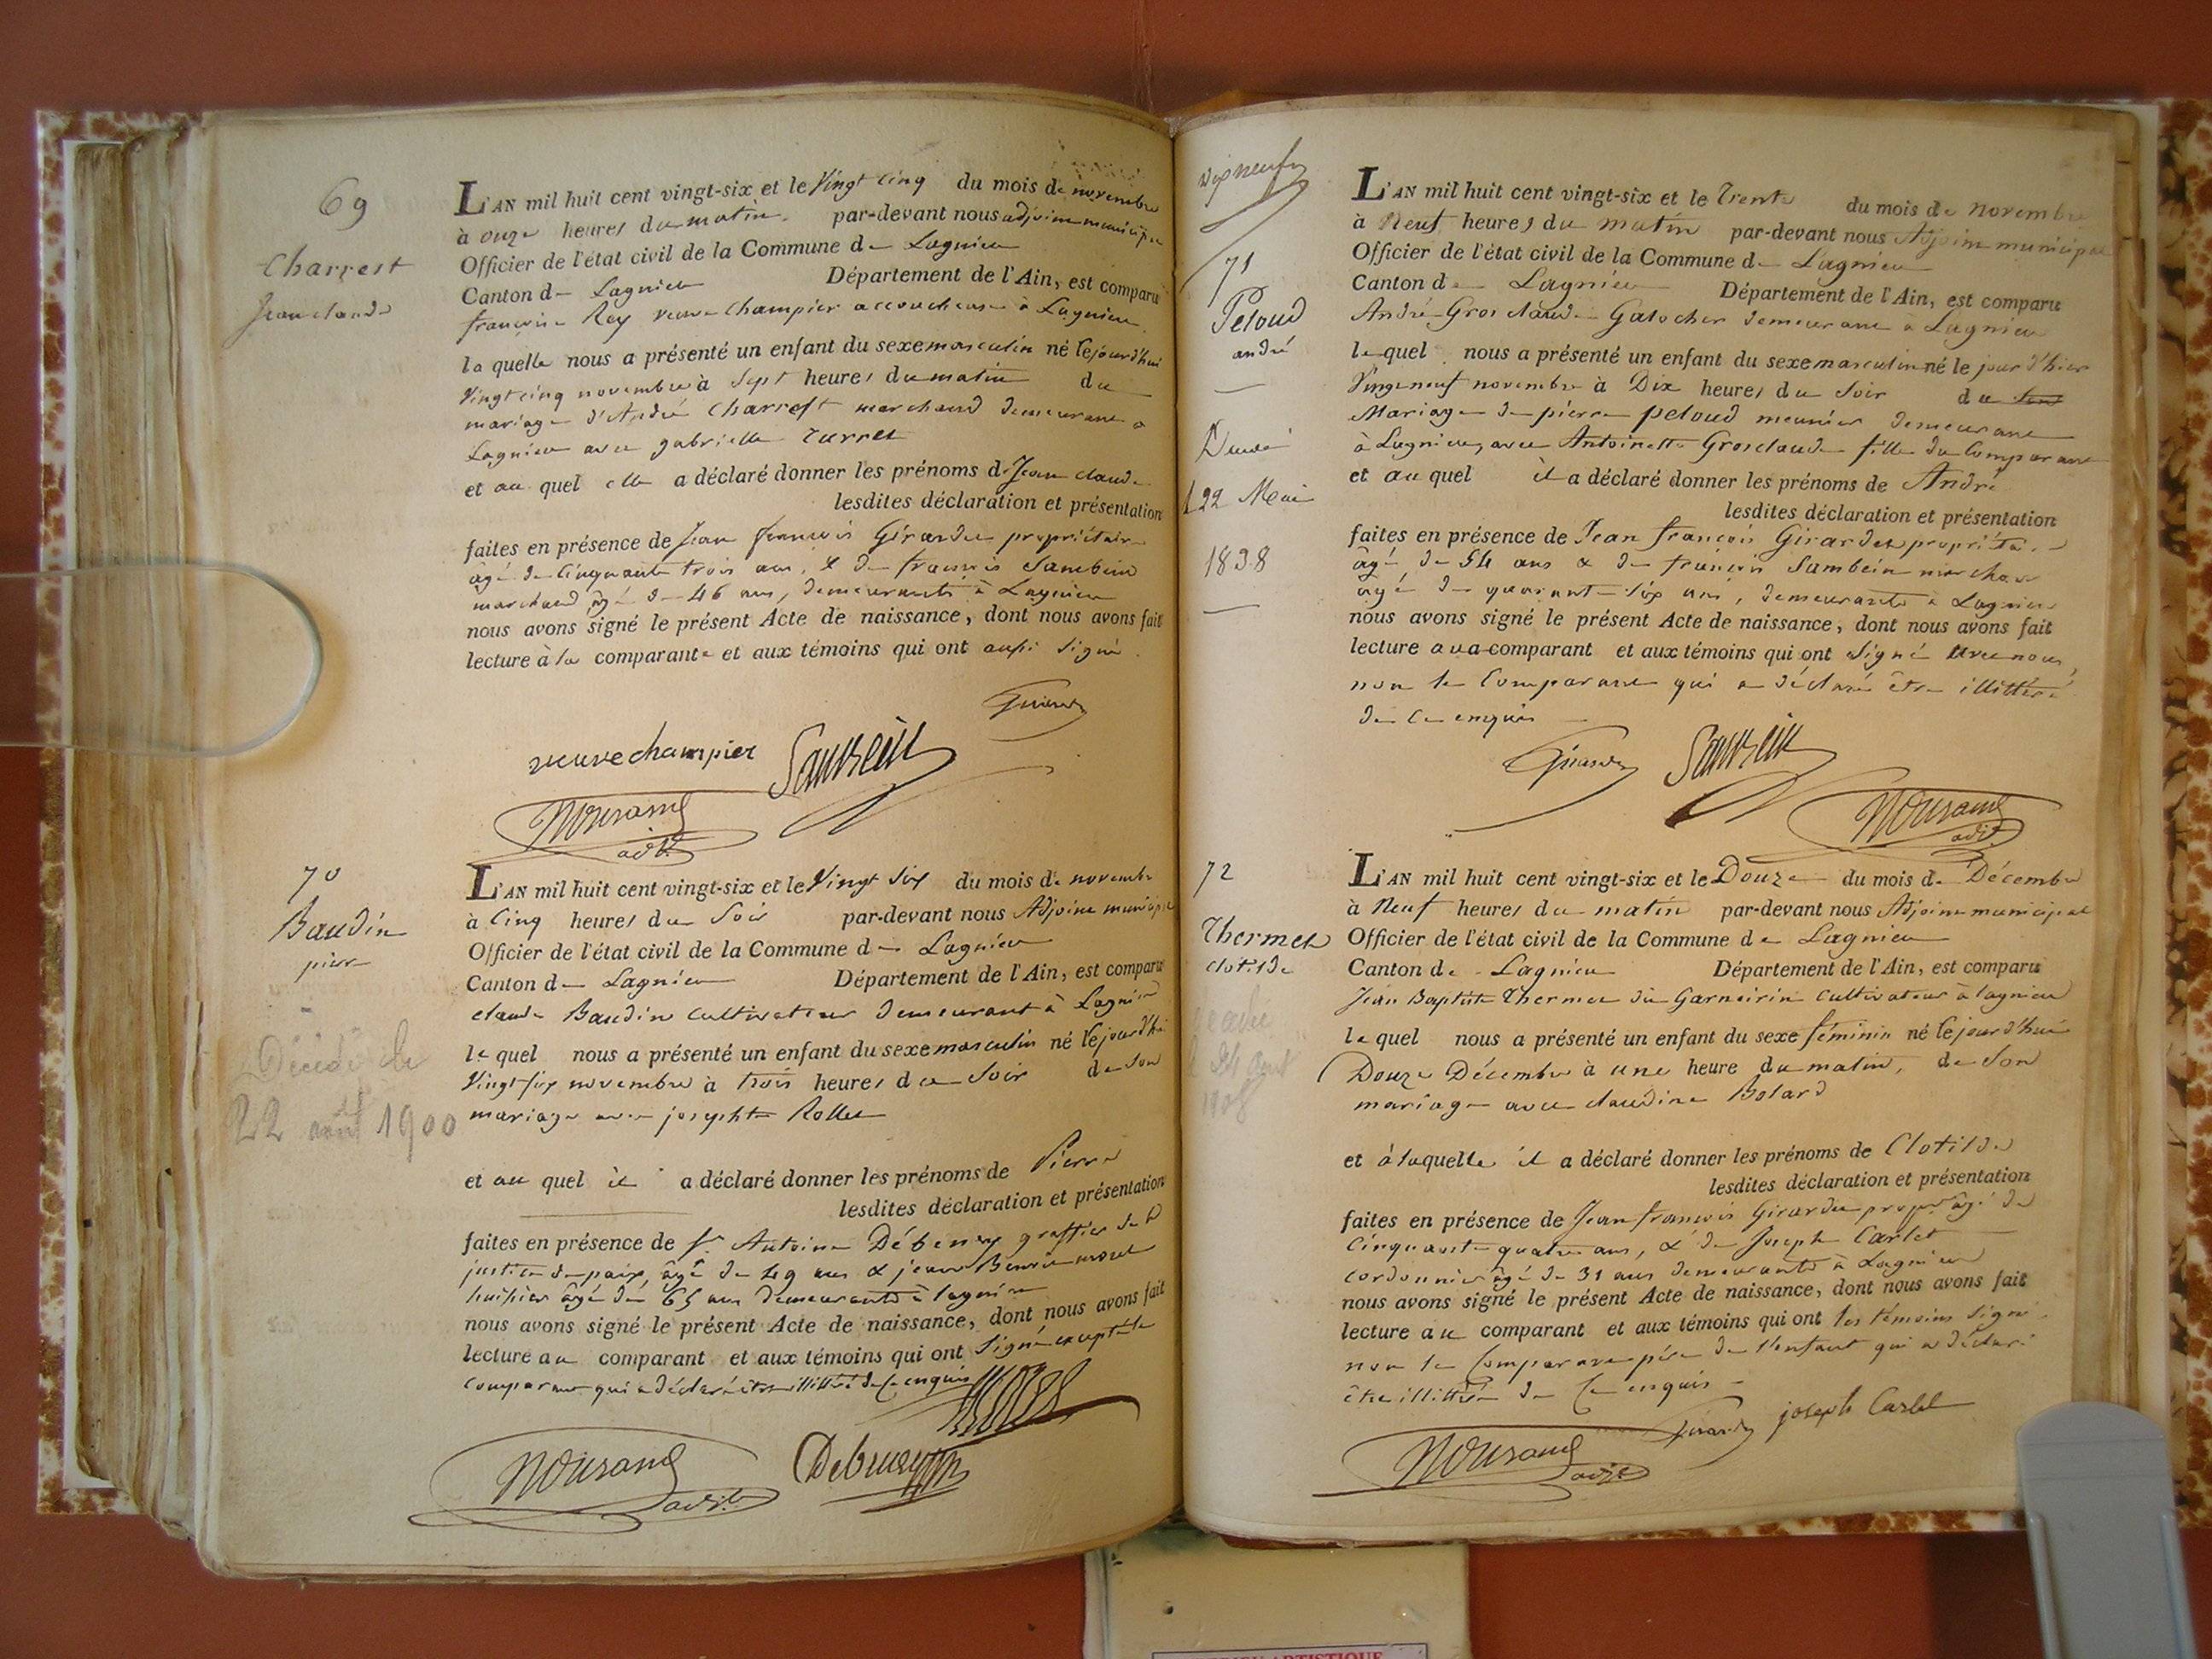 69
Charrest
Jean claude
L'AN mil huit cent vingt-six et le Vingt cinq du mois de novembre
à onze heures du matin. par-devant nous adjoint municipal
Officier de l'état civil de la Commune de Lagnieu
Canton de Lagnieu Département de l'Ain, est comparu
françoise Rey veuve Champier accoucheuse à Lagnieu
laquelle nous a présenté un enfant du sexe masculin né le jourd'hui
Vingt cinq novembre à Sept heures du matin du
mariage d'André Charrest marchand demeurant à
Lagnieu avec gabrielle
et au quel elle a déclaré donner les prénoms de Jean claude
lesdites déclaration et présentation
faites en présence de Jean françois Girardet propriétaire
âgé de Cinquante trois ans, & de françois Sambein
marchand âgé de 46 ans, demeurants à Lagnieu
nous avons signé le présent Acte de naissance, dont nous avons fait
lecture à la comparante et aux témoins qui ont aussi signé
Girardet
veuve champier Sambein
adjt
70
Baudin
pierre
Décédé le
22 août 1900
L'AN mil huit cent vingt-six et le Vingt Six du mois de novembre
à Cinq heures du Soir par-devant nous Adjoint municipal
Officier de l'état civil de la Commune de Lagnieu
Canton de Lagnieu Département de l'Ain, est comparu
claude Baudin Cultivateur demeurant à Lagnieu
lequel nous a présenté un enfant du sexe masculin né le jourd'hui
Vingt six novembre à trois heures du Soir de Son
mariage avec josephte Rollet
et au quel il a déclaré donner les prénoms de Pierre
lesdites déclaration et présentation
faites en présence de Sr Antoine Débeney greffier de la
justice de paix, âgé de 49 ans &
huissier âgé de 65 ans demeurants à lagnieu
nous avons signé le présent Acte de naissance, dont nous avons fait
lecture au comparant et aux témoins qui ont Signé excepté le
comparant qui a déclaré être illittéré de Ce enquis
adjt Debeney
Dix neuf
71
Peloud
andré
Décédé
le 22 Mai
1838
L'AN mil huit cent vingt-six et le Trente du mois de novembre
à Neuf heures du matin par-devant nous Adjoint municipal
Officier de l'état civil de la Commune de Lagnieu
Canton de Lagnieu Département de l'Ain, est comparu
André Grosclaude Galocher demeurant à Lagnieu
lequel nous a présenté un enfant du sexe masculin né le jour d'hier
Vingt neuf novembre à Dix heures du Soir du
Mariage de pierre peloud meunier demeurant
à Lagnieu, avec Antoinette Grosclaude fille du Comparant
et au quel il a déclaré donner les prénoms de André
lesdites déclaration et présentation
faites en présence de Jean françois Girardet propriétaire
âgé de 54 ans & de françois Sambein marchand
âgé de quarante six ans, demeurants à Lagnieu
nous avons signé le présent Acte de naissance, dont nous avons fait
lecture au comparant et aux témoins qui ont Signé avec nous,
non le Comparant qui a déclaré être illittéré
de Ce enquis
Girardet Sambein
adjt
72
Thermet
clotilde
1908
L'AN mil huit cent vingt-six et le Douze du mois de Décembre
à Neuf heures du matin par-devant nous Adjoint municipal
Officier de l'état civil de la Commune de Lagnieu
Canton de Lagnieu Département de l'Ain, est comparu
Jean Baptiste Thermet dit Garneirin Cultivateur à lagnieu
lequel nous a présenté un enfant du sexe féminin né le jourd'hui
Douze Décembre à une heure du matin, de Son
mariage avec claudine Bolard
et à laquelle il a déclaré donner les prénoms de Clotilde
lesdites déclaration et présentation
faites en présence de Jean françois Girardet propre âgé de
Cinquante quatre ans, & de Joseph Carlet
cordonnier âgé de 31 ans demeurants à Lagnieu
nous avons signé le présent Acte de naissance, dont nous avons fait
lecture au comparant et aux témoins qui ont les témoins signé
non le Comparant père de l'enfant qui a déclaré
être illittéré de Ce enquis
Girardet joseph Carlet
adjt